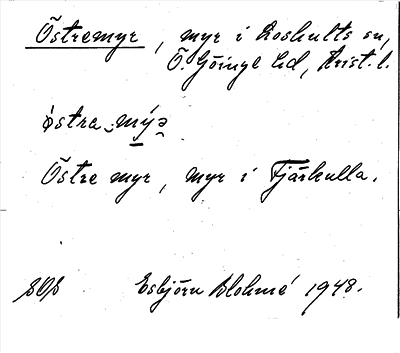 Östremyr, myr i Loshults sn,
Ö. Göinge hd, Krist. l.
östra mýə
Östre myr, myr i Fjärhulla.
Esbjörn Blohmé 1948.